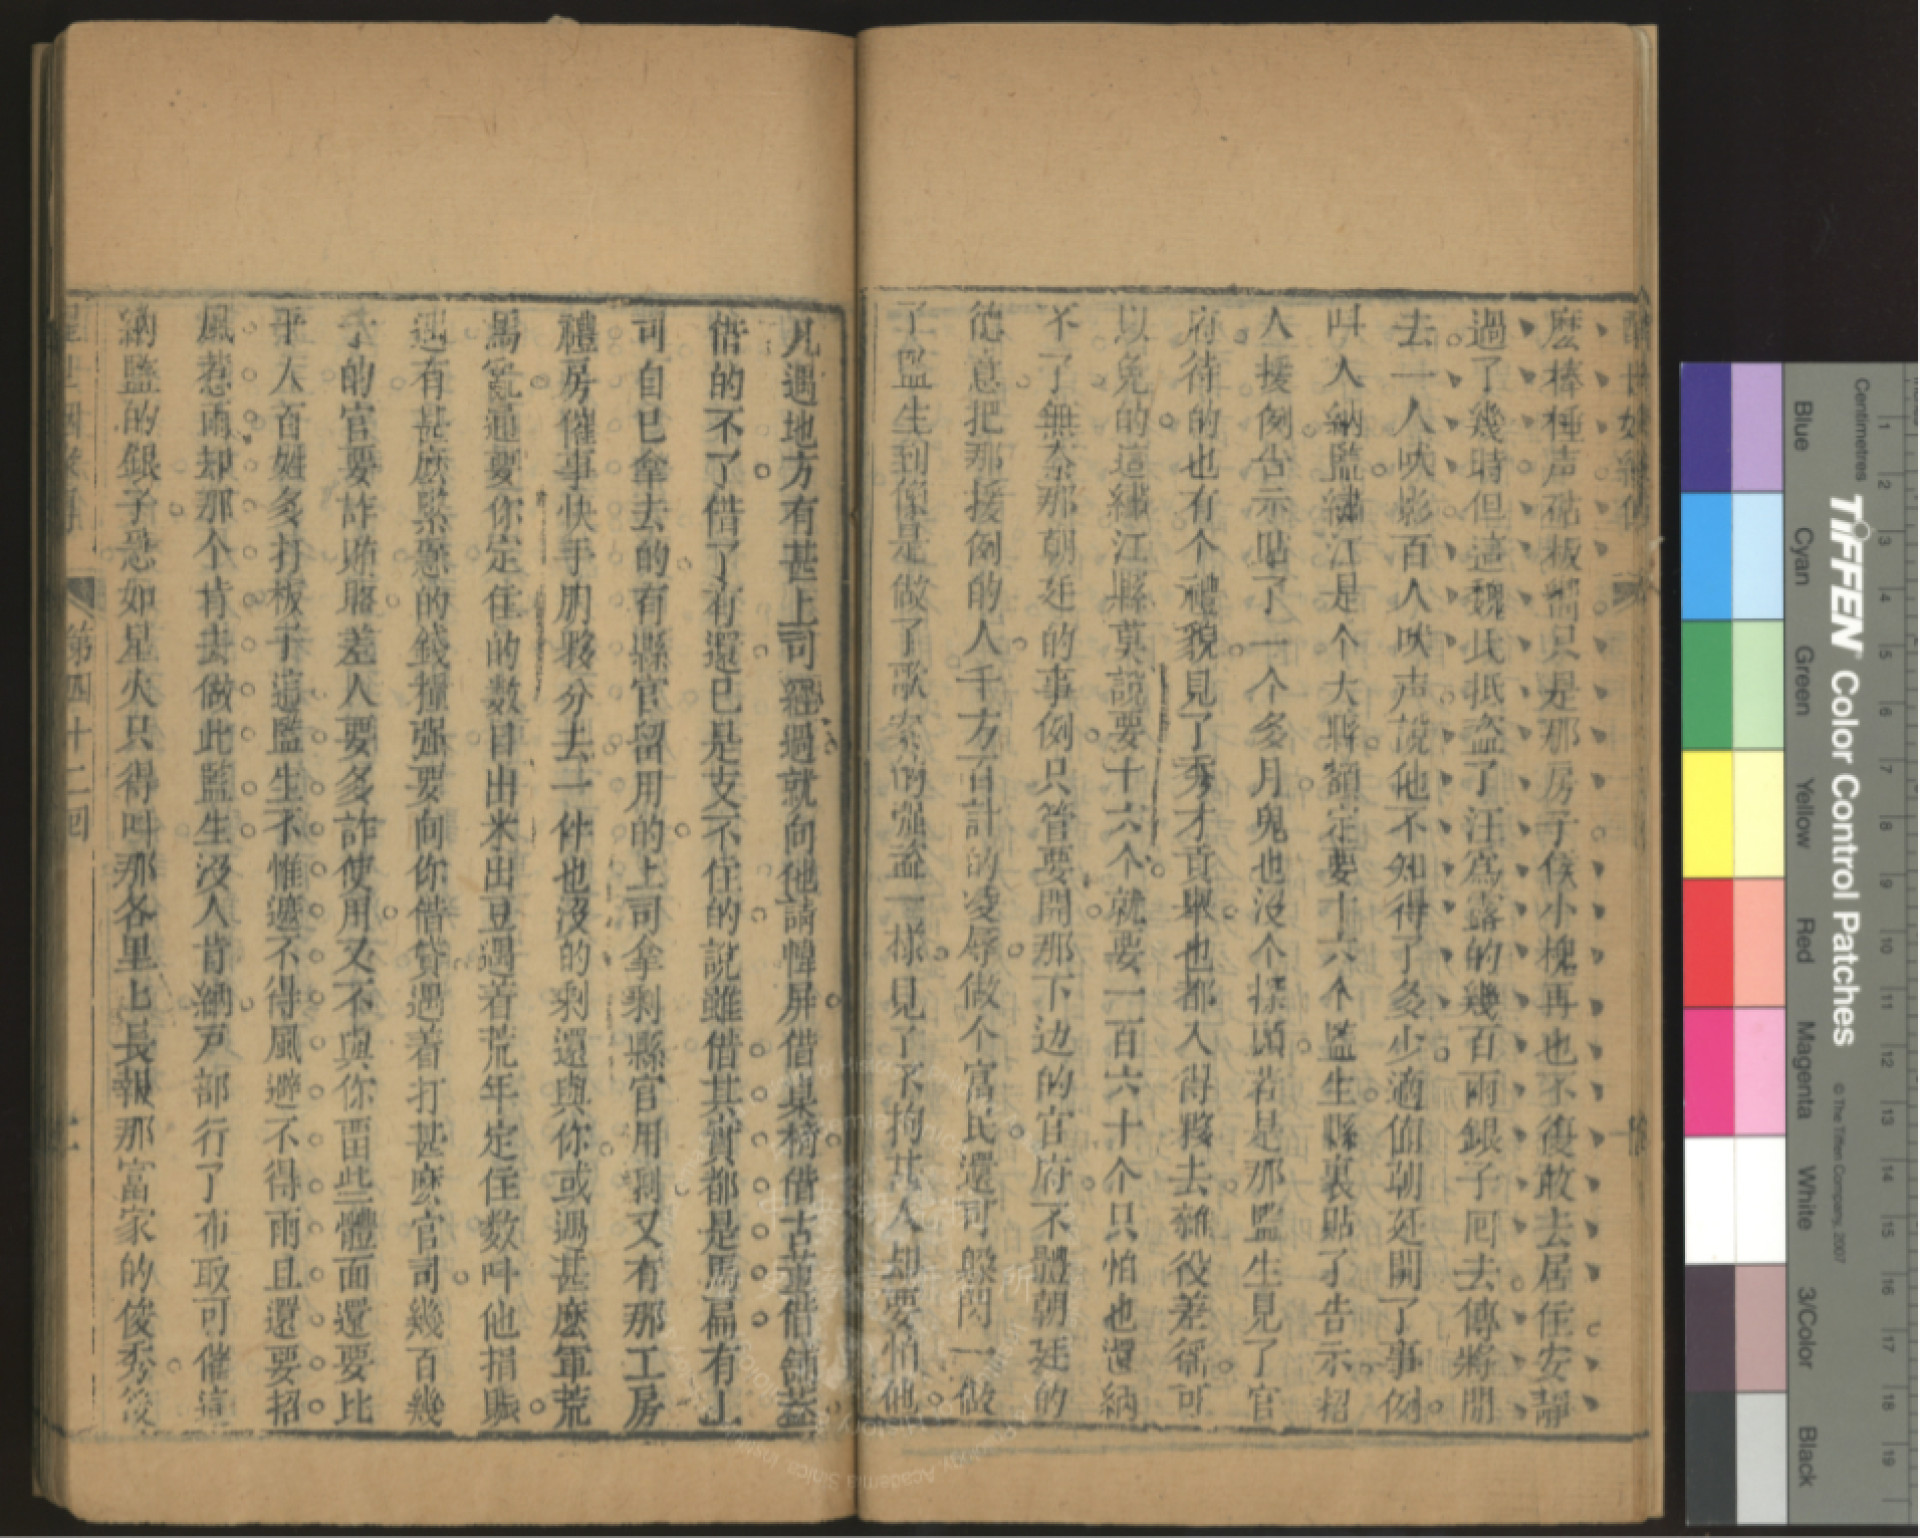 麽棒槌声砧板響只是那房子侯小槐再也不復敢去居住安靜
過了幾時但這魏氏抵盗了汪爲露的幾百両銀子囘去傳將開
去一人吠影百人吠声說他不知得了多少適值朝廷開了事例
呌人納監繡江是个大縣額定要十六个監生縣裏貼了告示招
人援例告示貼了一个多月鬼也没个探頭若是那監生見了官
府待的也有个禮貌見了秀才貢舉也都入得夥去雜役差徭可
以免的這繡江縣莫說要十六个就要一百六十个只怕也還納
不了無奈那朝廷的事例只管要開那下边的官府不體朝廷的
德意把那援例的人千方百計的凌辱做个富民還可躱閃一做
了監生到像是做了歌案的強盗一樣見了不拘甚人却要怕他
凡遇地方有甚上司經過就向他請幃屏借桌椅借古董借鋪蓋
借的不了借了有還已是支不住的說雖借其實都是馬扁有上
司自已拿去的有縣官留用的上司拿剩縣官用剩又有那工房
禮房催事快手朋夥分去一件也没的剩還與你或遇甚麽軍荒
馬亂通要你定住的數目出米出豆遇着荒年定住數呌他捐賑
遇有甚麽緊急的錢糧強要向你借貸遇着打甚麽官司幾百幾
千的官要詐賄賂差人要多詐使用又不與你畱些體面還要比
平人百姓多打板子這監生不惟遮不得風避不得雨且還要招
風惹雨却那个肯去做此監生没人肯納戸部行了布政司催這
納監的銀子急如星火只得呌那各里上長報那富家的俊秀後
第四十二囘